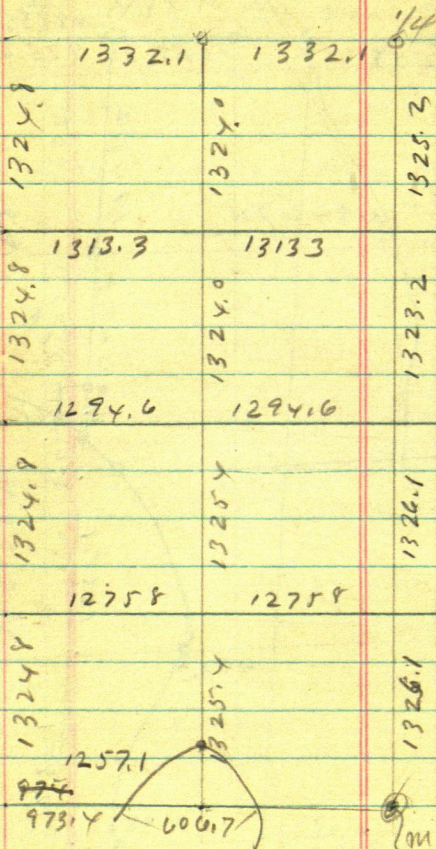 1/4
1332.1 1332.1
1324.8 1324.0 1325.2
1313.3 13133
1324.8 1324.0 1323.2
1294.6 1294.6
1324.8 1325 4 1326.1
12758 12758
1324 8 1325.4 1326.1
1257.1
974
973.4 606.7
m